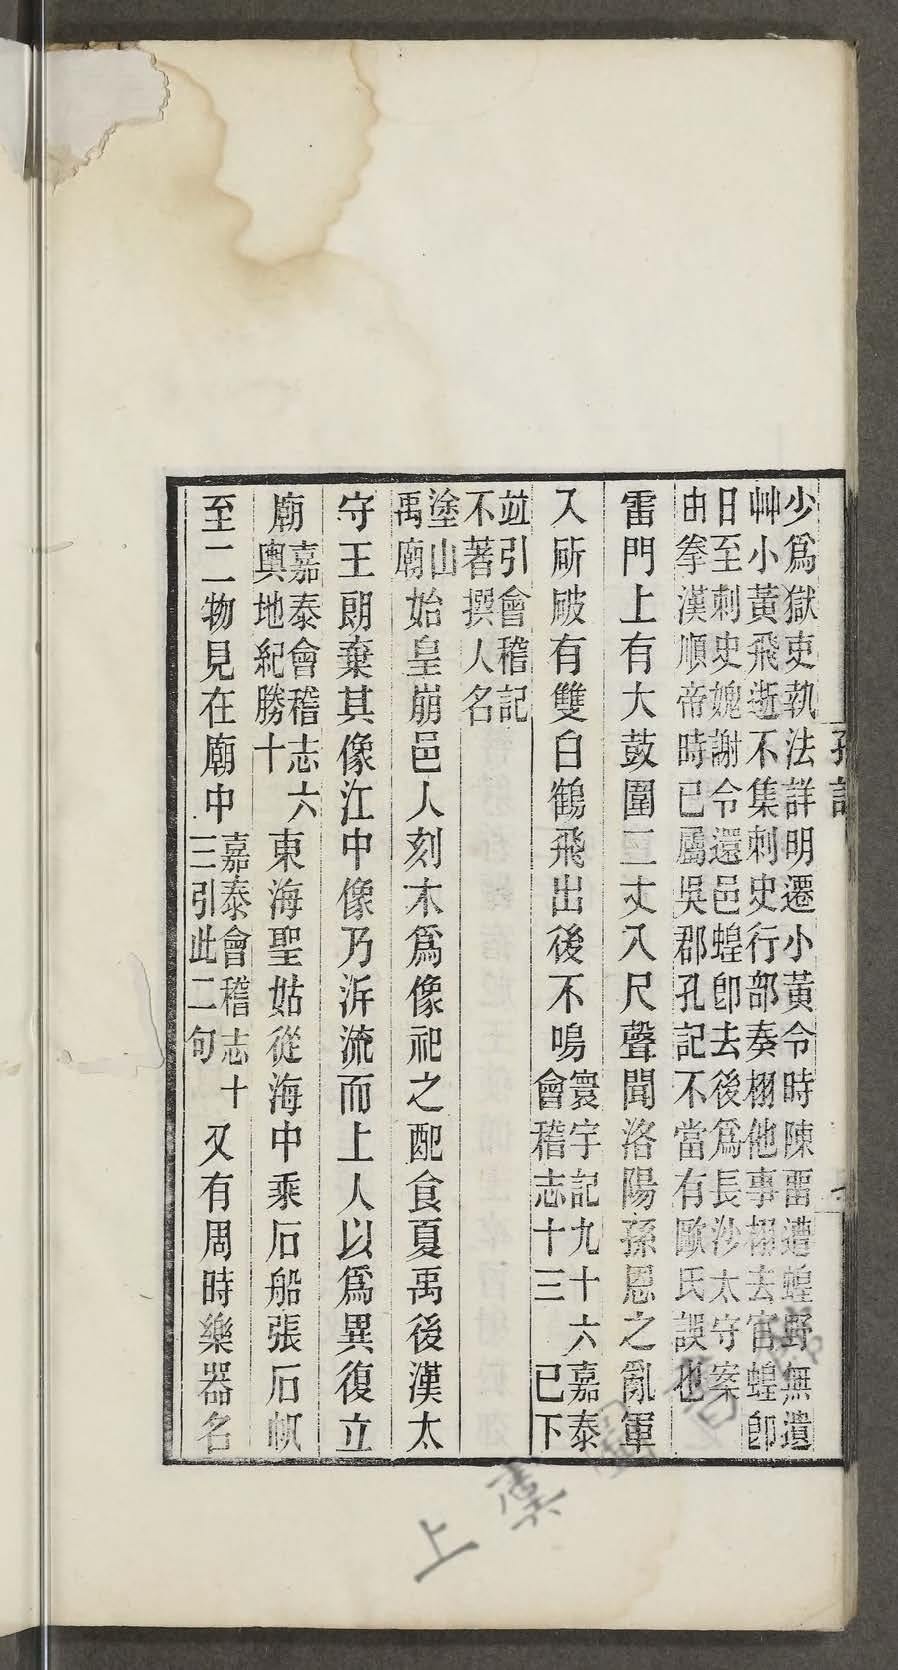 孔記
少爲獄吏執法詳明遷小黃令時陳畱遭蝗野無遺
艸小黃飛逝不集刺史行部奏栩他事栩去官蝗卽
日至刺史媿謝令還邑蝗卽去後爲長沙太守案
由拳漢順帝時已屬吳郡孔記不當有歐氏誤也
雷門上有大鼓圍二丈八尺聲聞洛陽孫恩之亂軍
人斫破有雙白鶴飛出後不鳴寰宇記九十六嘉泰
會稽志十三 已下
竝引會稽記
不著撰人名
塗山
禹廟始皇崩邑人刻木爲像祀之配食夏禹後漢太
守王朗棄其像江中像乃泝流而上人以爲異復立
廟嘉泰會稽志六
輿地紀勝十東海聖姑從海中乘石船張石帆
至二物見在廟中嘉泰會稽志十
三引此二句又有周時樂器名
上虞圖書館